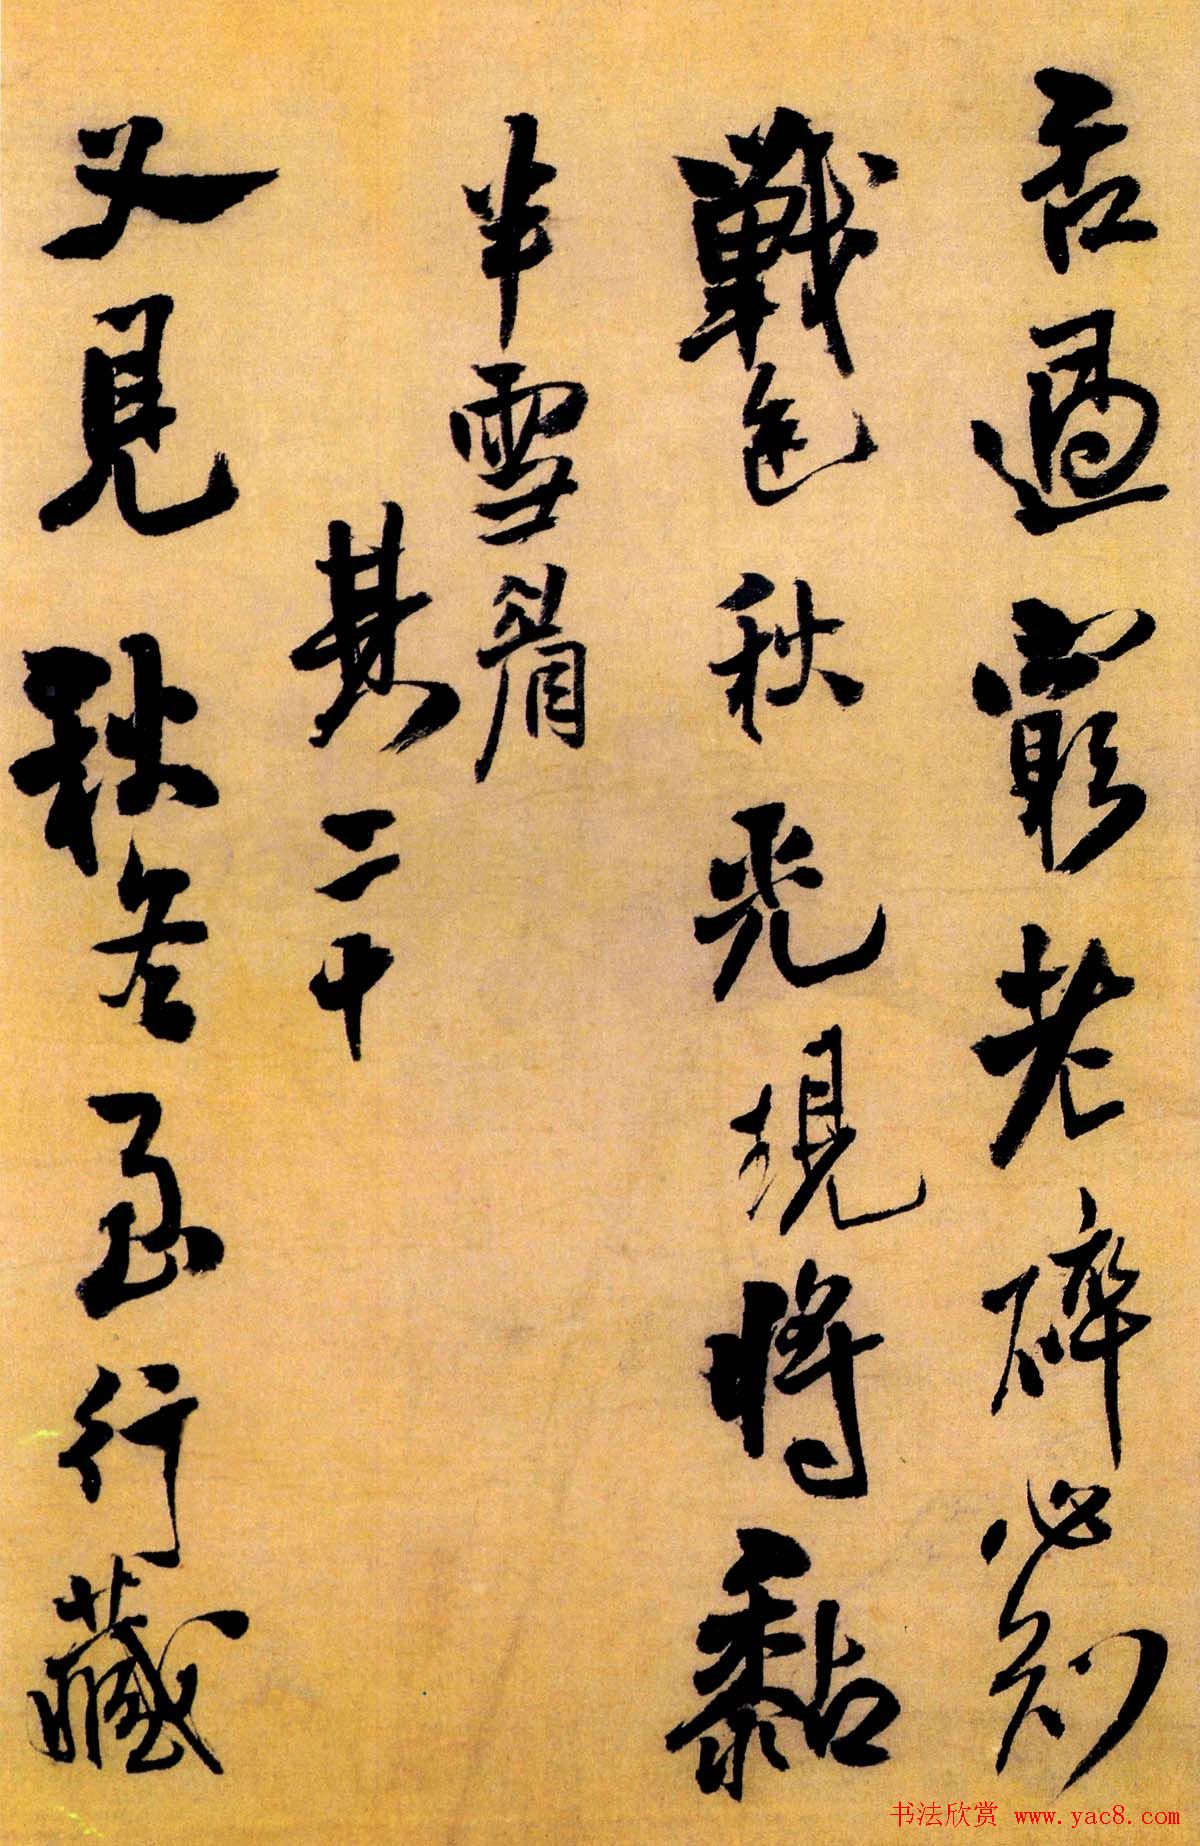 舌過窮老碎必刻
戰色秋光現將黏
半雪眉
其二十
又見秋冬行藏
书法欣赏 www.yac8.com